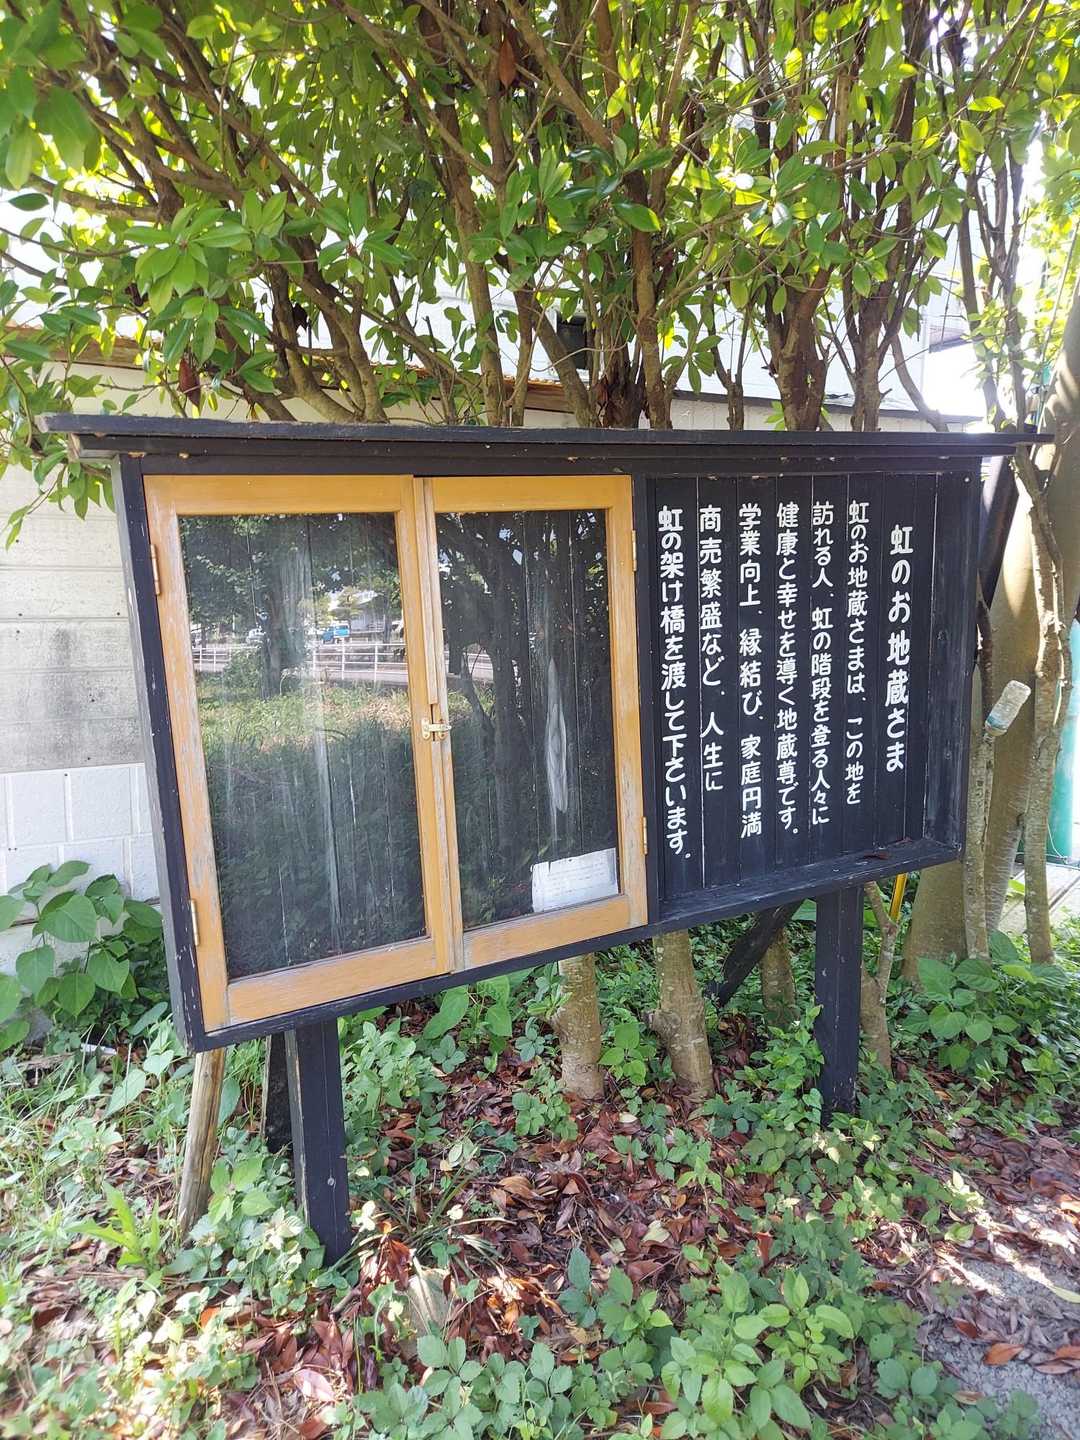 虹のお地蔵さま
虹のお地蔵さまは、この地を
訪れる人、虹の階段を登る人々に
健康と幸せを導く地蔵尊です。
学業向上、縁結び、家庭円満
商売繁盛など、人生に
虹の架け橋を渡して下さいます。